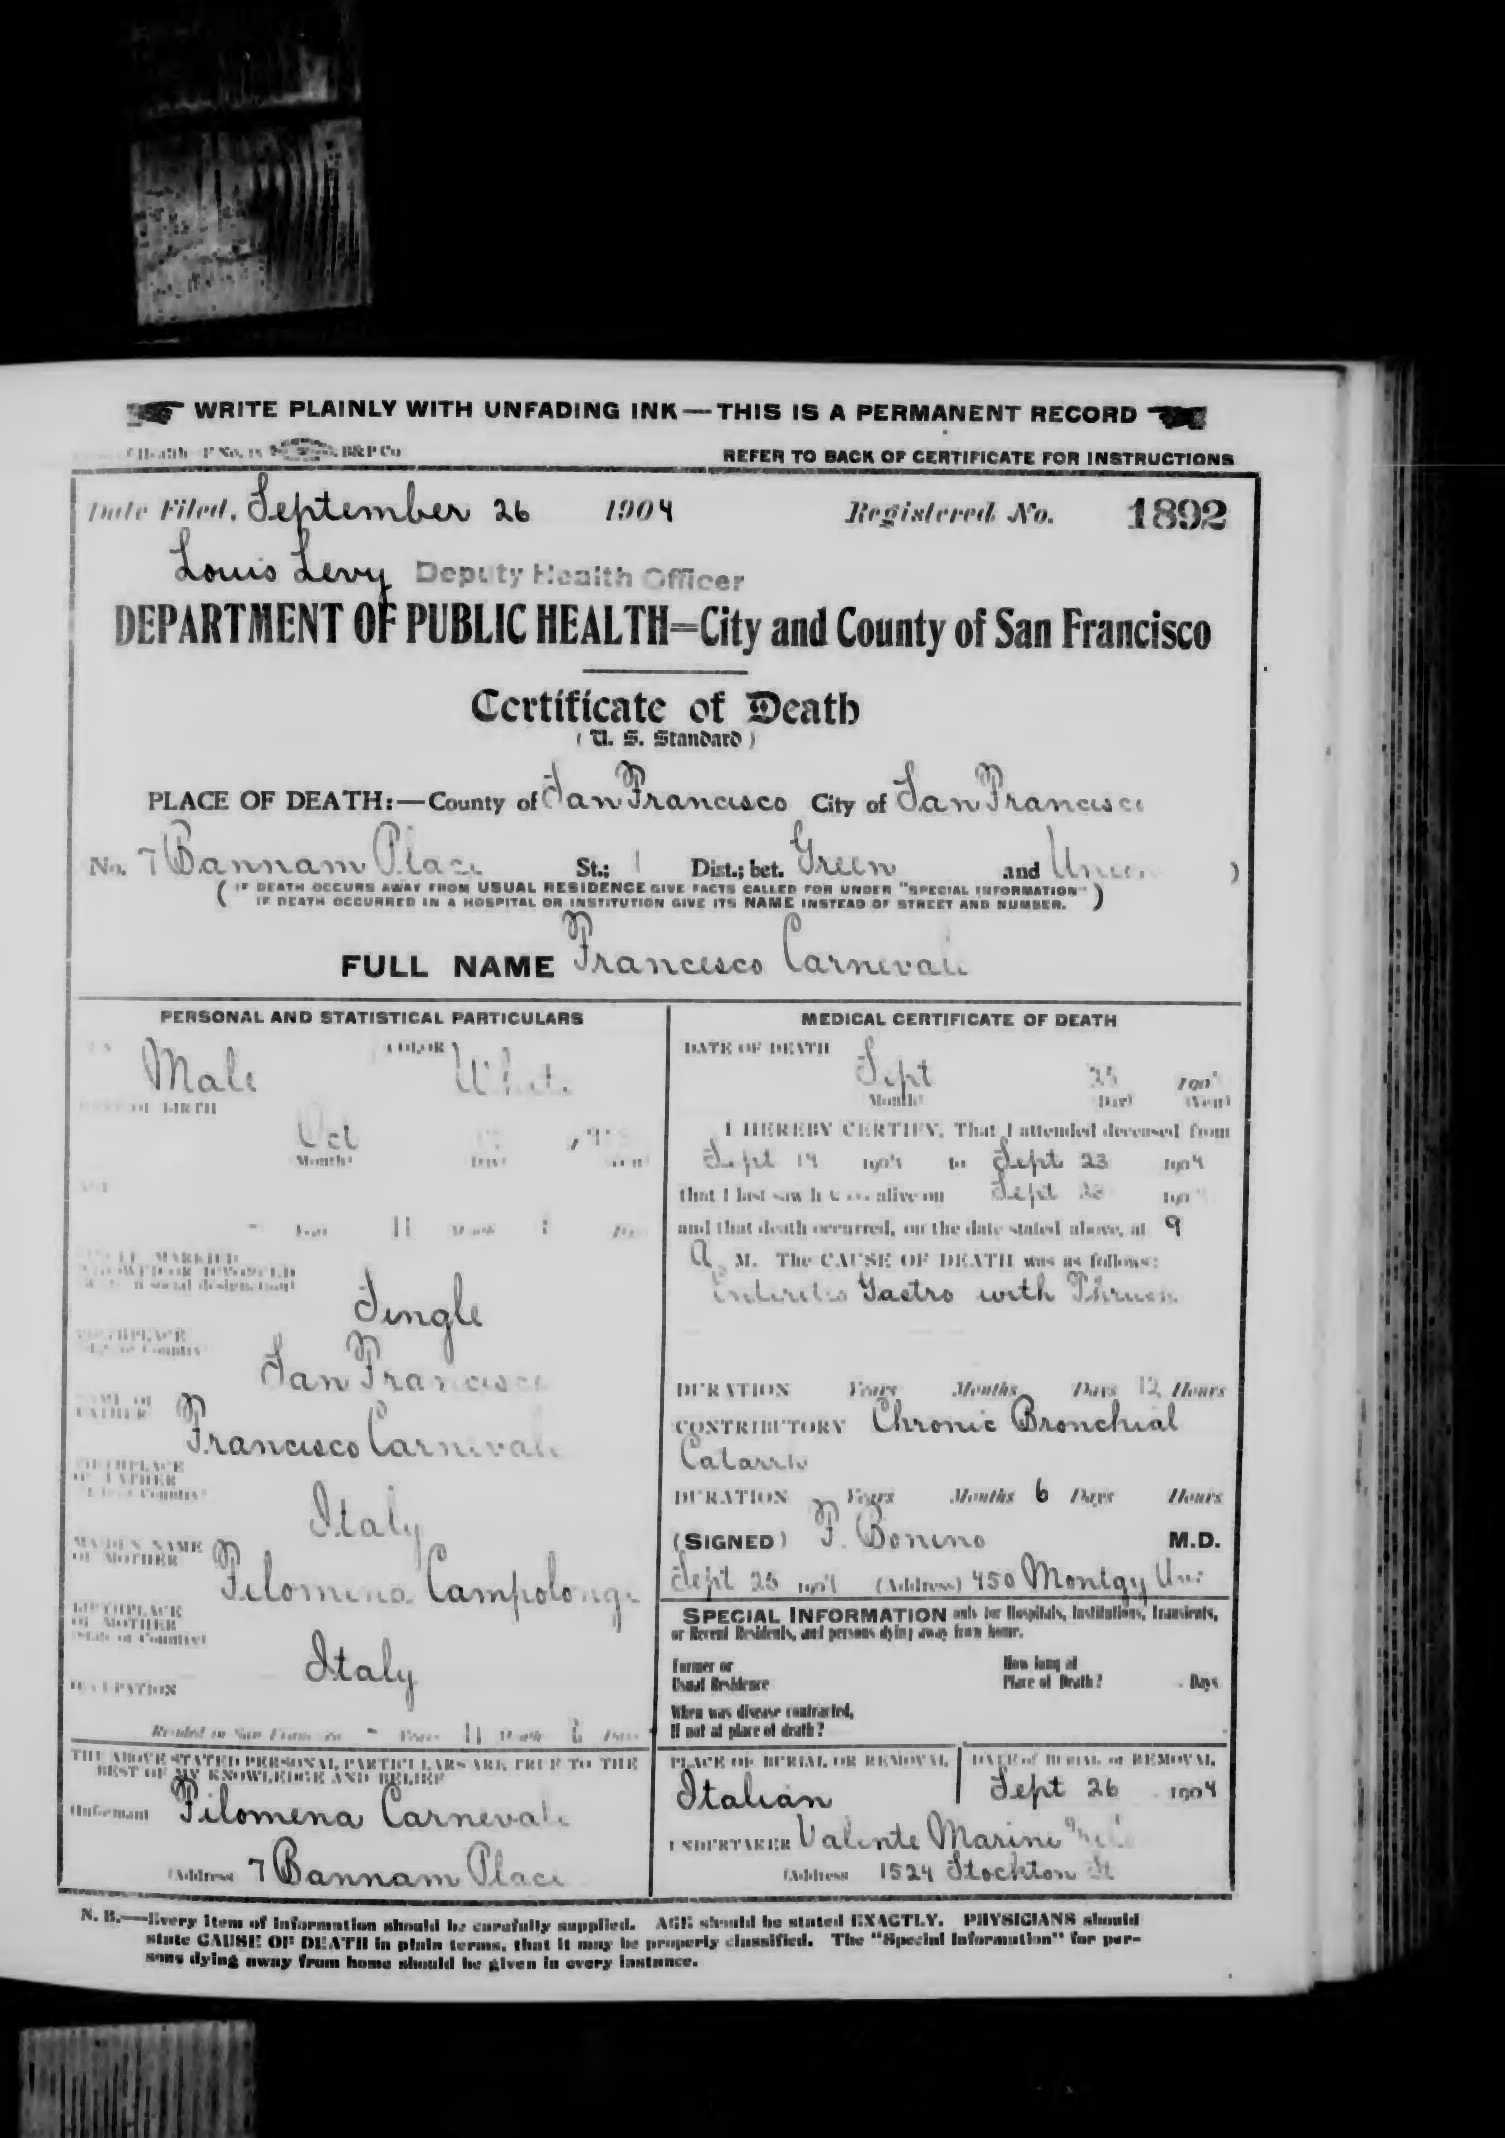 WRITE PLAINLY WITH UNFADING INK — THIS IS A PERMANENT RECORD
B&P Co
REFER TO BACK OF CERTIFICATE FOR INSTRUCTIONS
Date Filed, September 26 1904 Registered No. 1892
Louis Levy Deputy Health Officer
DEPARTMENT OF PUBLIC HEALTH=City and County of San Francisco
Certificate of Death
(U. S. Standard)
PLACE OF DEATH:—County of San Francisco City of San Francisco
No. 7 Bannam Place St.; 1 Dist.; bet. Green and Union )
( IF DEATH OCCURS AWAY FROM USUAL RESIDENCE GIVE FACTS CALLED FOR UNDER "SPECIAL INFORMATION"
IF DEATH OCCURRED IN A HOSPITAL OR INSTITUTION GIVE ITS NAME INSTEAD OF STREET AND NUMBER. )
FULL NAME Francesco Carnevale
PERSONAL AND STATISTICAL PARTICULARS
SEX Male COLOR White
DATE OF BIRTH
Oct
(Month) (Day) (Year)
AGE
- Years 11 Months Days
SINGLE, MARRIED
WIDOWED OR DIVORCED
(Write in social designation)
Single
BIRTHPLACE
(State or Country)
San Francisco
NAME OF
FATHER
Francisco Carnevale
BIRTHPLACE
OF FATHER
(State or Country)
Italy
MAIDEN NAME
OF MOTHER
Filomena Campolongo
BIRTHPLACE
OF MOTHER
(State or Country)
Italy
OCCUPATION
Resided in San Francisco - Years 11 Months Days
THE ABOVE STATED PERSONAL PARTICULARS ARE TRUE TO THE
BEST OF MY KNOWLEDGE AND BELIEF
(Informant Filomena Carnevale
(Address 7 Bannam Place
MEDICAL CERTIFICATE OF DEATH
DATE OF DEATH
Sept 25 190
(Month) (Day) (Year)
I HEREBY CERTIFY, That I attended deceased from
Sept 14 1904 to Sept 23 1904
that I last saw h alive on Sept 190
and that death occurred, on the date stated above, at 9
A M. The CAUSE OF DEATH was as follows:
Enteritis Gastro with Thrush
DURATION Years Months Days 12 Hours
CONTRIBUTORY Chronic Bronchial
Catarrh
DURATION Years Months 6 Days Hours
(SIGNED) F. Bonino M.D.
Sept 25 1904 (Address) 450 Montgy
SPECIAL INFORMATION only for Hospitals, Institutions, Transients,
or Recent Residents, and persons dying away from home.
Former or
Usual Residence
How long at
Place of Death? Days
When was disease contracted,
If not at place of death?
PLACE OF BURIAL OR REMOVAL
Italian
DATE of BURIAL or REMOVAL
Sept 26 1904
UNDERTAKER Valente Marini
(Address 1524 Stockton St
N. B.—Every item of information should be carefully supplied. AGE should be stated EXACTLY. PHYSICIANS should
state CAUSE OF DEATH in plain terms, that it may be properly classified. The "Special Information" for per-
sons dying away from home should be given in every instance.